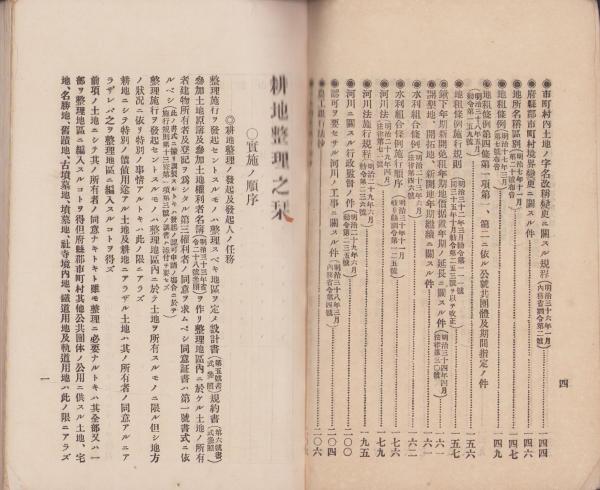 ◉市町村內土地ノ字名改稱變更ニ關スル規程(明治三十六年一月 內務省訓令第二號)………一四四
◉府縣郡市町村境界變更ニ關スル件………一四六
◉地所名稱區別(明治七年十一月 第百二十號布告)………一四七
◉地租條例(明治十七年三月 第七號布告)………一四九
◉地租條例第四條第一項第一、第二ニ依ル公號共團體及期間指定ノ件
………一五六
◉地租條例施行規則………一五七
◉鍬下年期新開免租年期地價据置年期ノ延長ニ關スル件(明治三十四年四月 法律第三〇號)………一六一
◉開墾地、開拓地、新開地年期繼續ニ關スル件………一六一
◉水利組合條例………一六二
◉水利組合條例施行順序………一七六
◉河川法………一七九
◉河川法施行規程………一九五
◉河川ニ關スル行政監督ノ件………二〇〇
◉認可ヲ要セサル河川ノ工事ニ關スル件………二〇四
◉農工銀行法抄………二〇六
四
耕地整理之栞
〇實施ノ順序
◎耕地整理ノ發起及發起人ノ任務
整理施行ヲ發起セントスルモノハ整理スベキ地區ヲ定メ設計書(第五號書式參照)規約書(第六號書式參照)
參加土地原簿及參加土地權利者名簿ヲ作リ整理地區內ニ於ケル土地ノ所有
者建物所有者及登記ヲ爲シタル第三權利者ノ同意ヲ求ムベシ同意証書ハ第一號書式ニ依
ルベシ
整理施行ヲ發起セントスルモノハ整理地區內ニ於テ土地ヲ所有スルモノニ限ル但シ地方
ノ狀況ニ依リ特別ノ事情アルトキハ此ノ限ニアラズ
耕地ニシテ特別ノ價値用途アル土地及耕地ニアラザル土地ハ其ノ所有者ノ同意アルニア
ラザレバ之ヲ整理地區ニ編入スルコトヲ得ズ
前項ノ土地ニシテ其ノ所有者ノ同意ナキトキト雖モ整理ニ必要ナルトキハ其全部又ハ一
部ヲ整理地區ニ編入スルコトヲ得但府縣郡市町村其他公共團体ノ公用ニ供スル土地、宅
地、名勝地、舊蹟地、古墳墓地、墳墓地、社寺境內地、鐵道用地及軌道用地ハ此ノ限ニアラズ
一